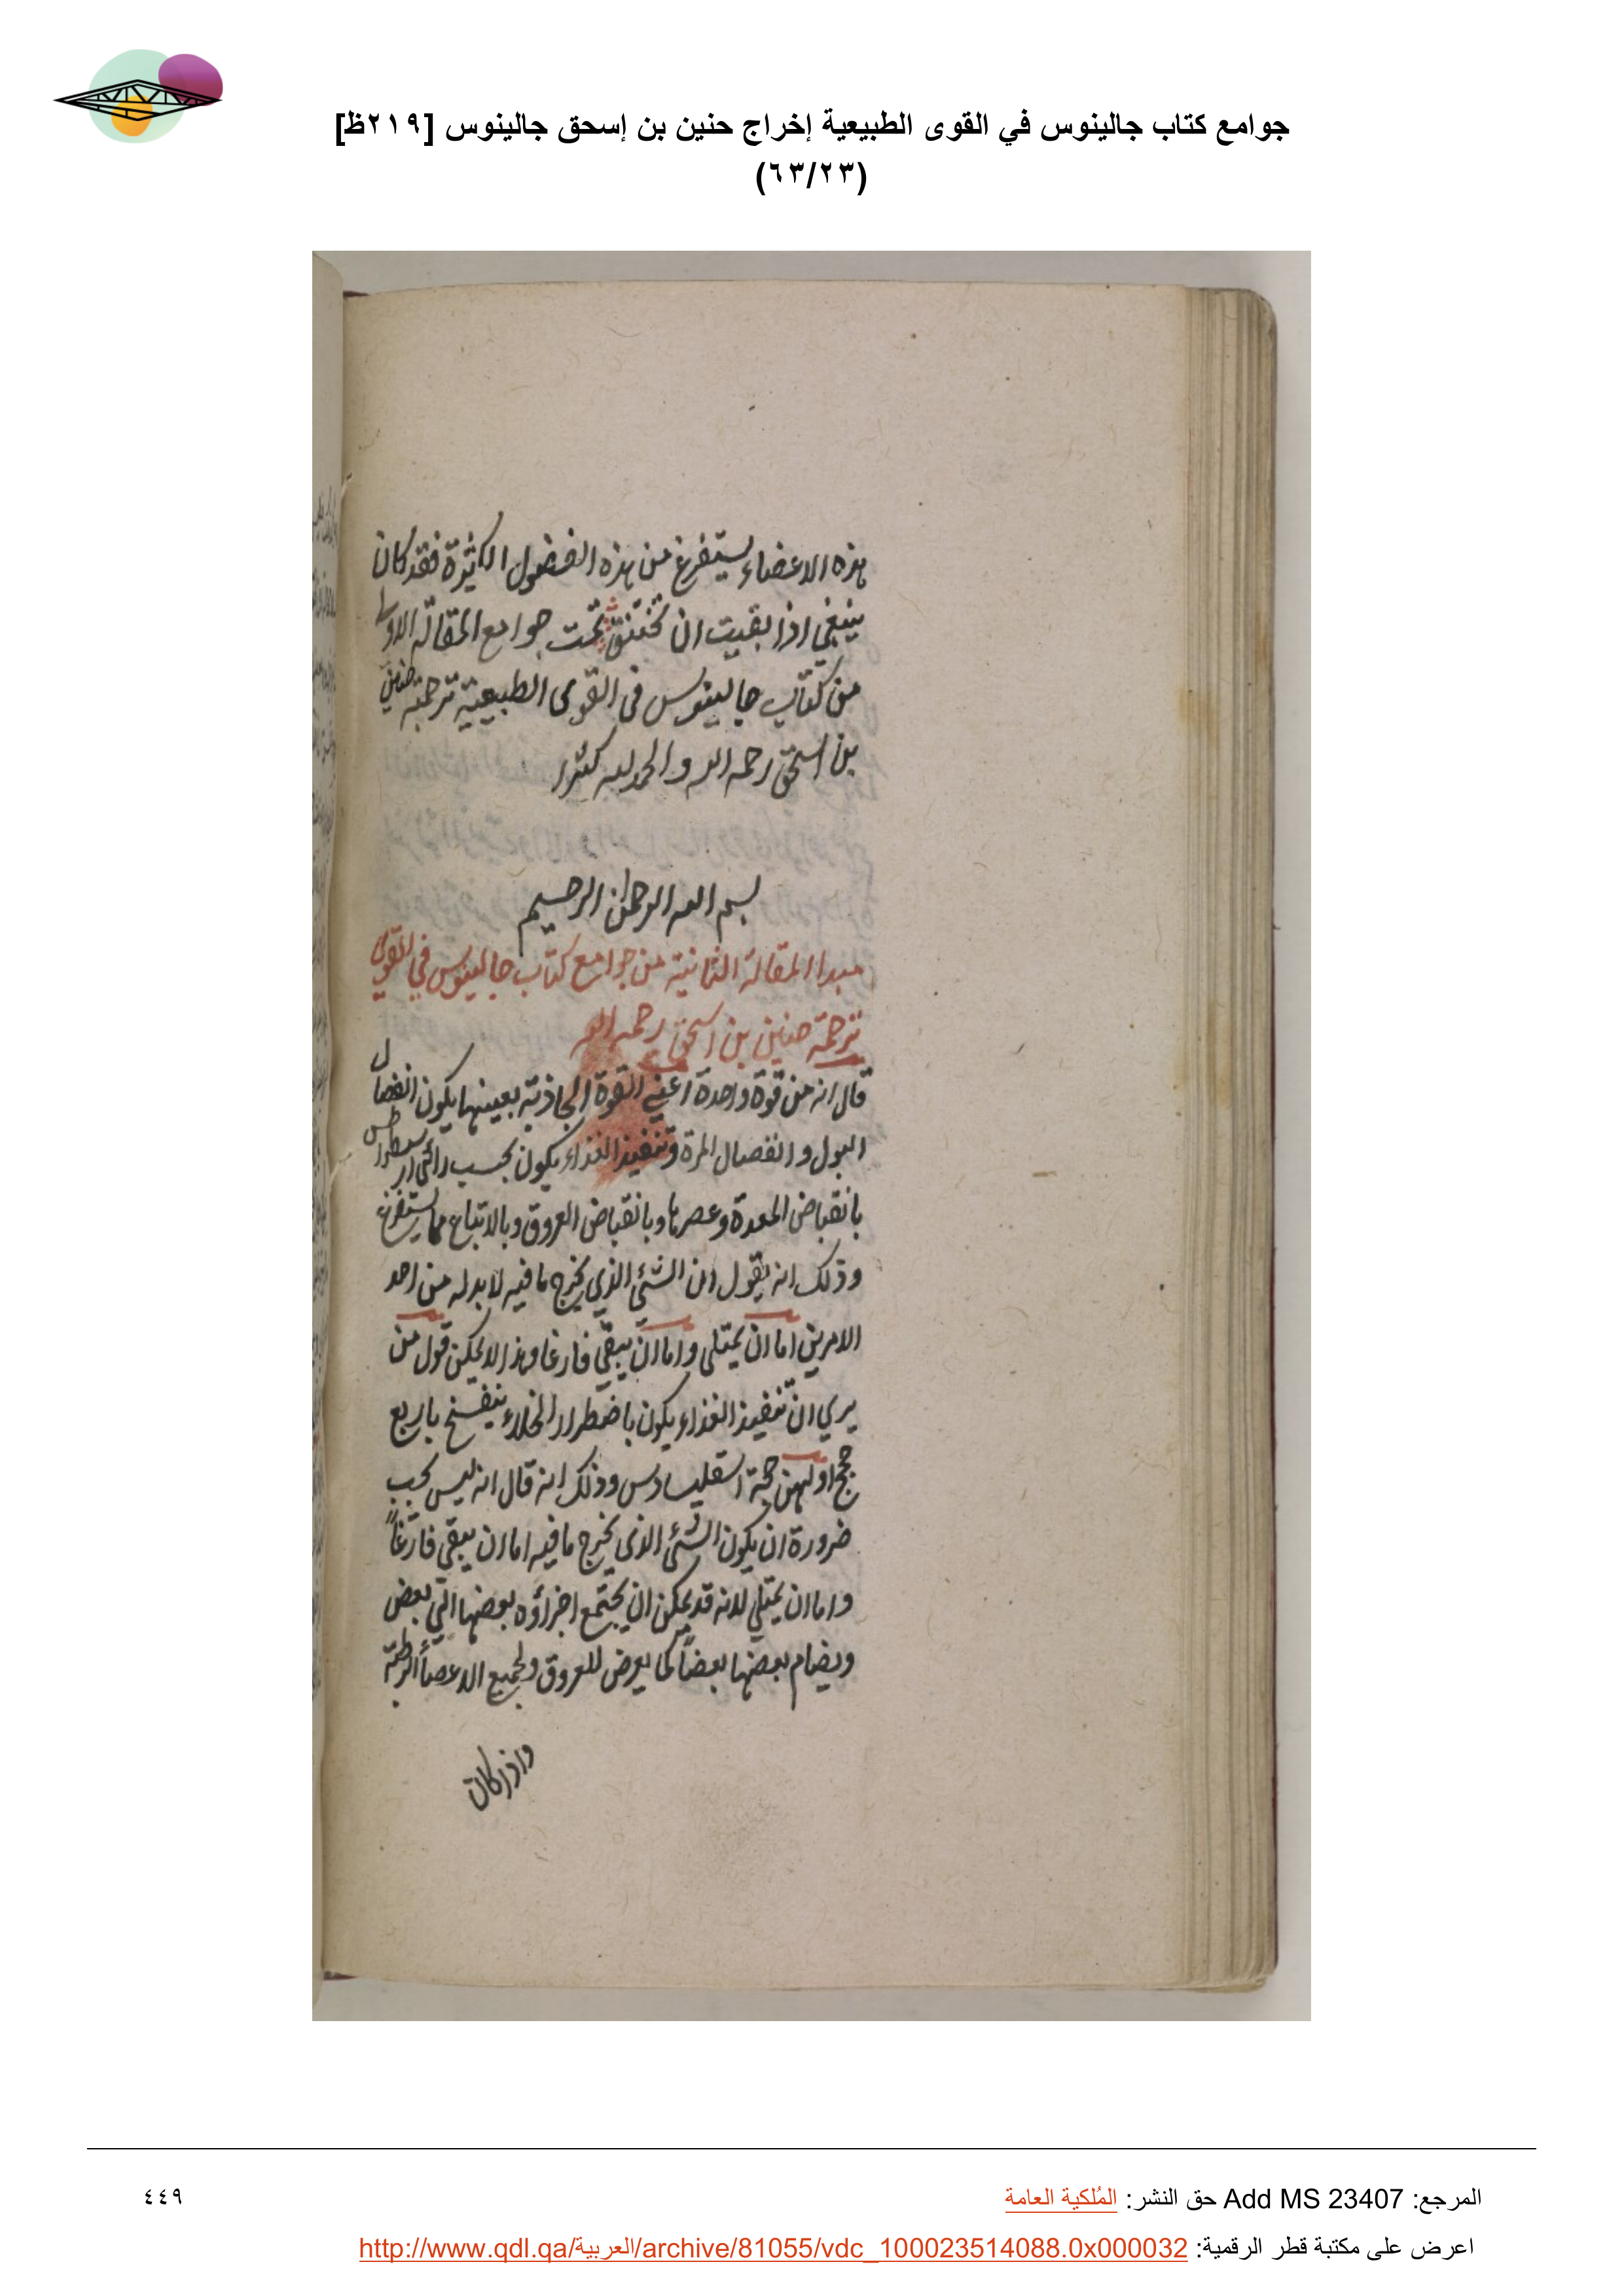 جوامع كتاب جالينوس في القوى الطبيعية إخراج حنين بن إسحق جالينوس [٢١٩ظ]
(٦٣/٢٣)
هذه الاعضاء يستفرغ من هذه الفضول الكثيرة فقد كان
ينبغي اذا بقيت ان تختنق تمت جوامع المقالة الاولى
من كتاب جالينوس في القوى الطبيعية ترجمة حنين
بن اسحق رحمه الله والحمد لله كثيرا
بسم الله الرحمن الرحيم
مبدا المقالة الثانية من جوامع كتاب جالينوس في القوى
ترجمة حنين بن اسحق رحمه الله
قال انه من قوة واحدة اعني القوة الجاذبة بعينها يكون انفصال
البول وانفصال المرة وتنفيذ الغذاء يكون بحسب راي
بانقباض المعدة وعصرها وبانقباض العروق وبالاتباع لما يستفرغ
وذلك انه يقول ان الشئ الذي يخرج ما فيه لا بد له من احد
الامرين اما ان يمتلى واما ان يبقي فارغا وهذا لا يمكن قول من
يري ان تنفيذ الغذاء يكون باضطرار الخلاء ينفسخ باربع
حجج اولهن حجة اسقليبيادس وذلك انه قال انه ليس يجب
ضرورة ان يكون الشئ الذي يخرج ما فيه اما ان يبقي فارغاً
واما ان يمتلي لانه قد يمكن ان يجتمع اجزاؤه بعضها الي بعض
ويضام بعضها بعضاً كما يعرض للعروق ولجميع الاعضاء الرطبة
واذا كان
المرجع: Add MS 23407 حق النشر: المُلكية العامة
٤٤٩
اعرض على مكتبة قطر الرقمية: http://www.qdl.qa/العربية/archive/81055/vdc_100023514088.0x000032